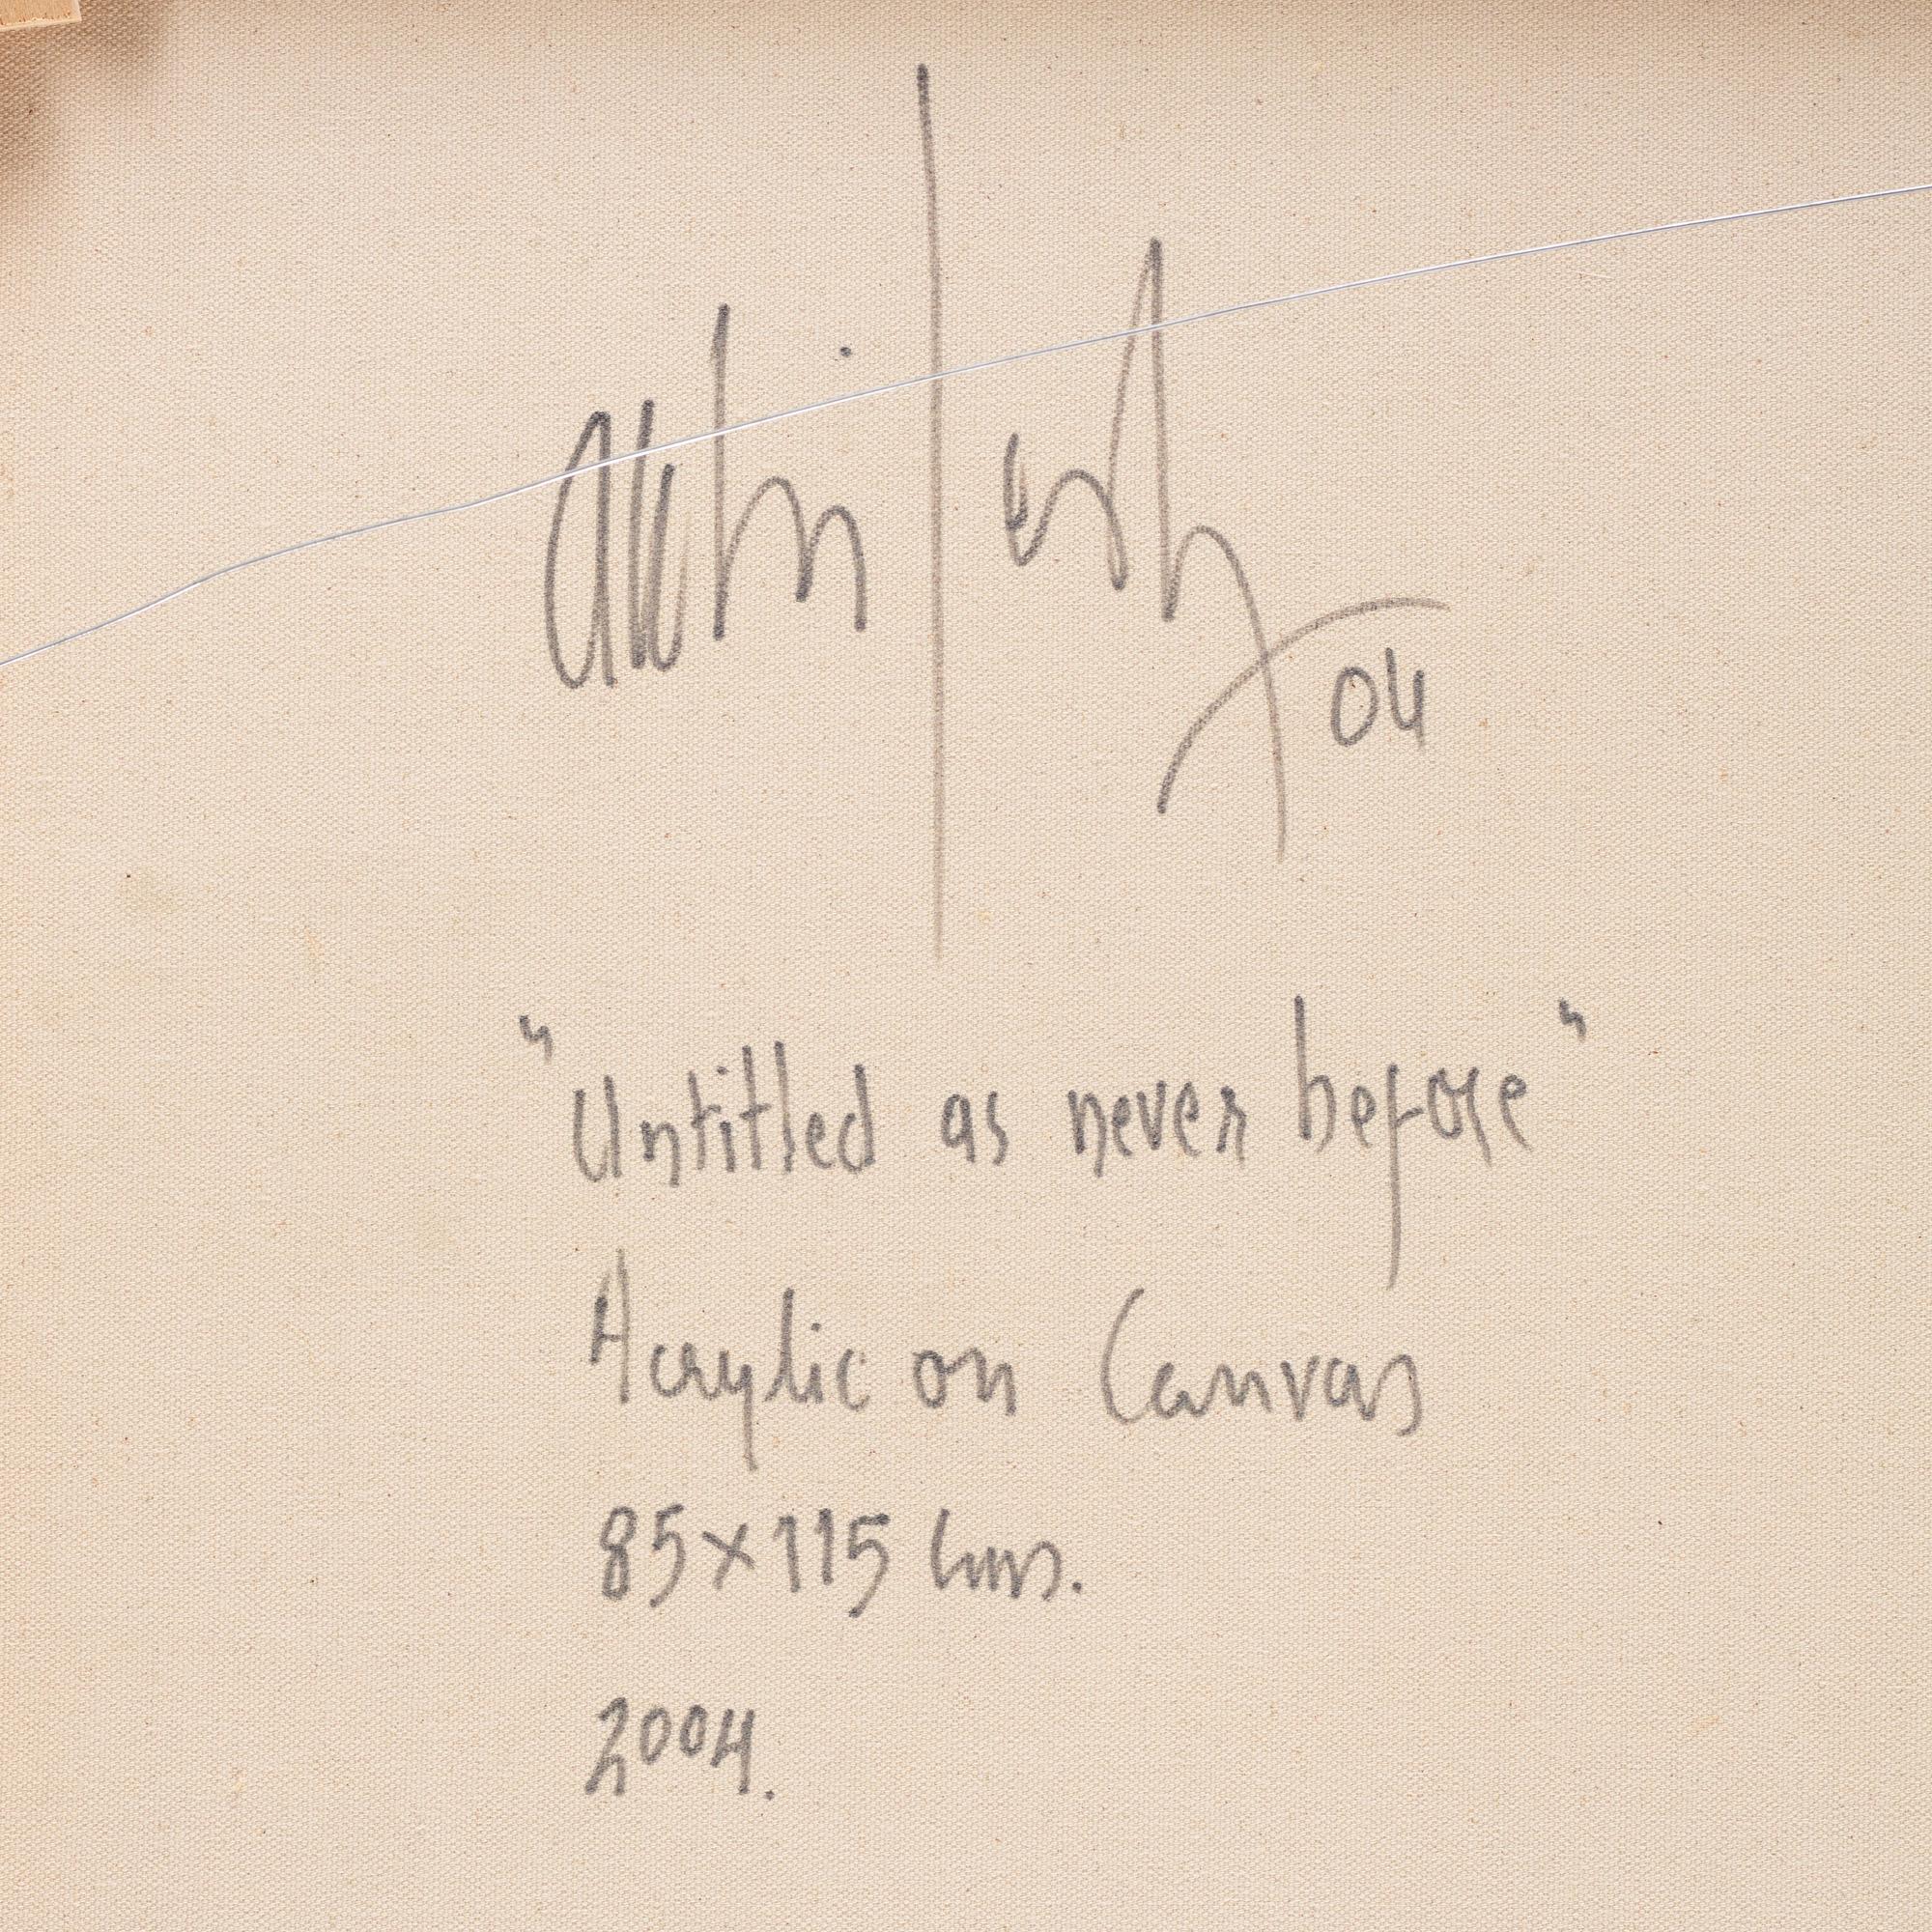 Akhilesh 04
"Untitled as never before"
Acrylic on Canvas
85x115 Cms.
2004.